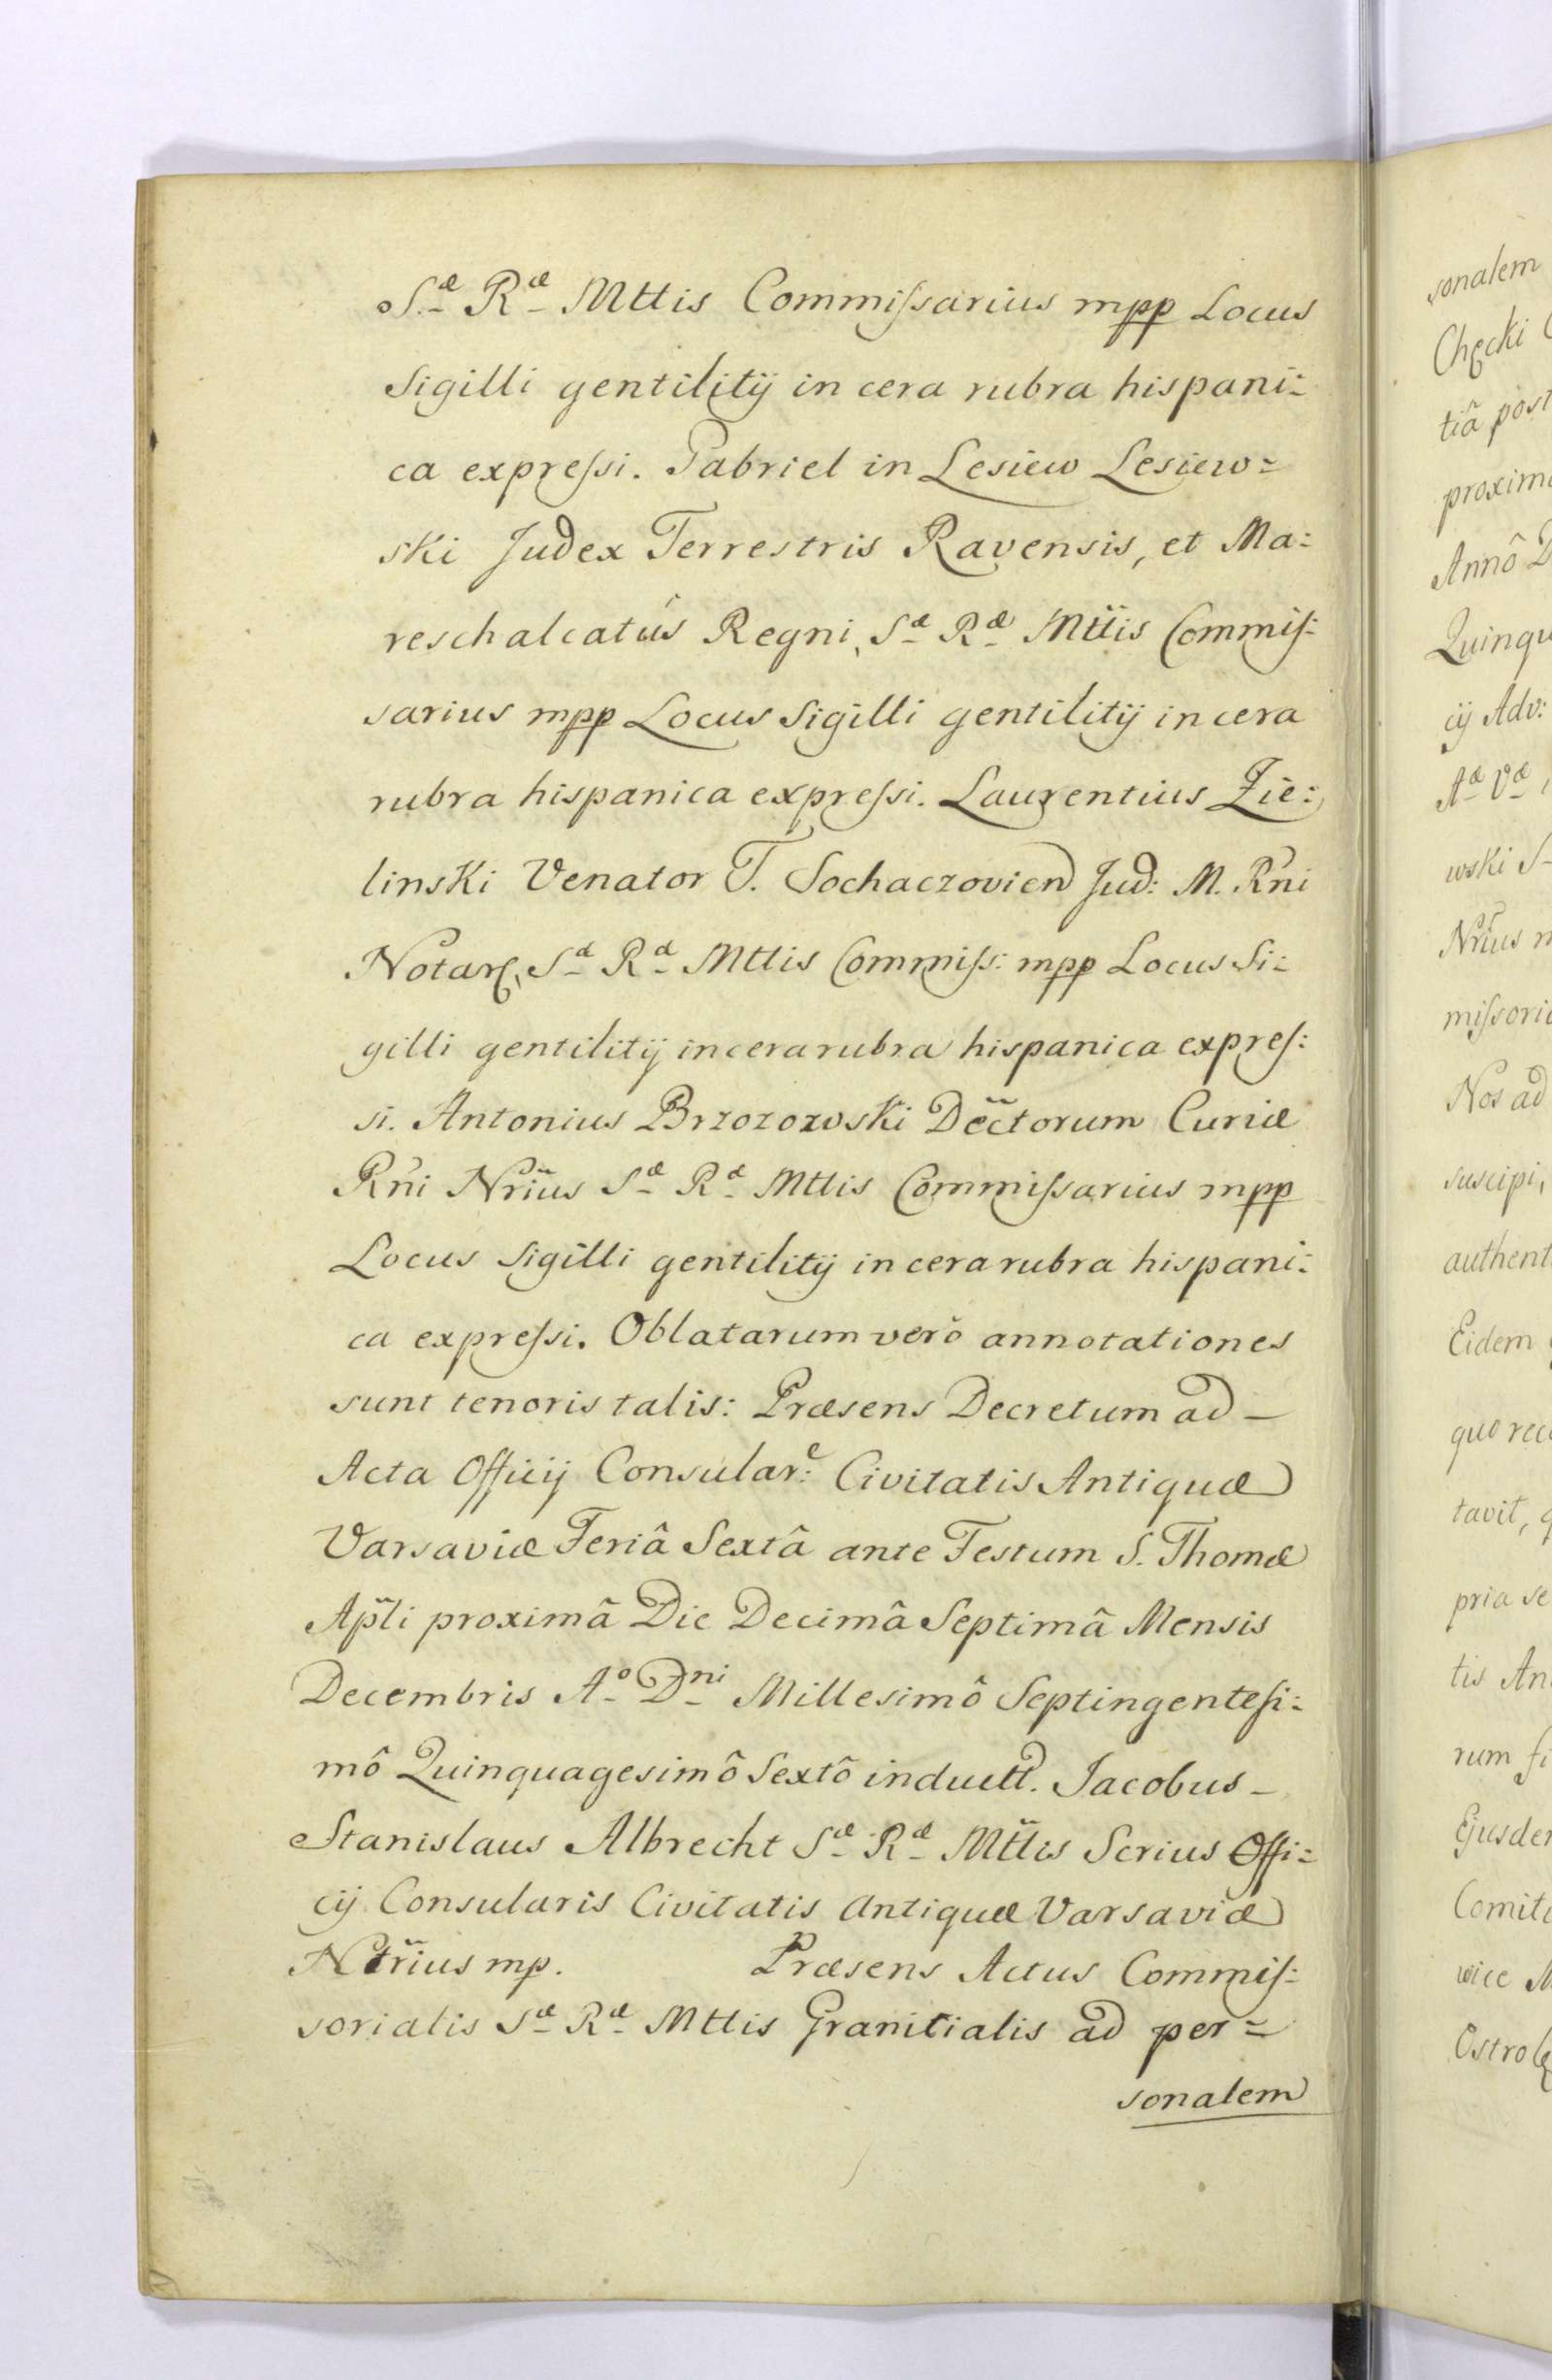 Sæ Ræ Mttis Commissarius mpp Locus
Sigilli gentilitij in cera rubra hispani=
ca expressi. Gabriel in Lesiew Lesiew=
ski Judex Terrestris Ravensis, et Ma=
reschalcatûs Regni, Sæ Ræ Mttis Commis=
sarius mpp Locus Sigilli gentilitij in cera
rubra hispanica expressi. Laurentius Zie=
linski Venator T. Sochaczovien Jud: M. Rñi
Notar, Sæ Ræ Mttis Commiss: mpp Locus Si=
gilli gentilitij in cera rubra hispanica expres=
si. Antonius Brzozowski Dec̃torum Curiæ
Rñi Nrĩus Sæ Ræ Mttis Commissarius mpp
Locus Sigilli gentilitij in cera rubra hispani=
ca expressi. Oblatarum verò annotationes
sunt tenoris talis: Præsens Decretum ad –
Acta Officij Consulare: Civitatis Antiquæ
Varsaviæ Feriâ Sextâ ante Festum S. Thomæ
Apl̃i proximâ Die Decimâ Septimâ Mensis
Decembris Ao Dni Millesimô Septingentesi=
mô Quinquagesimô Sextô inductt. Jacobus –
Stanislaus Albrecht Sæ Ræ Mttis Scrius Offi=
cij Consularis Civitatis Antiquæ Varsaviæ
Ntrĩus mp. Præsens Actus Commis=
sorialis Sæ Ræ Mttis Granitialis ad per=
sonalem
sonalem
Chęcki
tiã post
proxim
Annô D
Quinqu
cij Adv:
Aæ Væ
wski S
Nrĩus m
missori
Nos ad
suscipi,
authent
Eidem
quo rec
tavit, q
pria se
tis An
rum fi
Ejusdem
Comit
wice M
Ostrołę